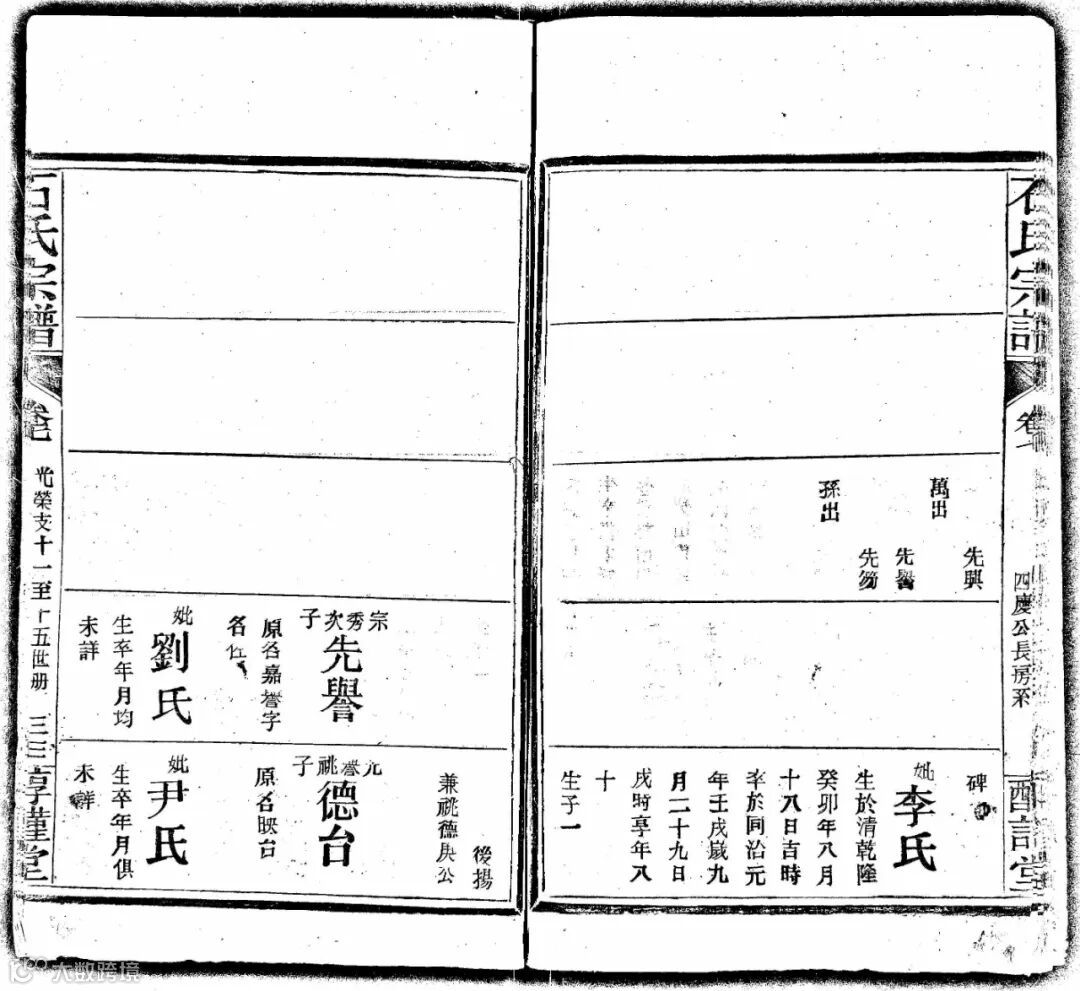 石氏宗譜
卷
四慶公長房系
先興
萬出
先譽
先笏
孫出
碑
妣李氏
生於清乾隆
癸卯年八月
十八日吉時
卒於同治元
年壬戌歲九
月二十九日
戌時享年八
十
生子一
後揚
兼祧德庚公
宗秀次子先譽
原名嘉譽字
名佐
妣劉氏
生卒年月均
未詳
先譽祧子德台
原名映台
妣尹氏
生卒年月俱
未詳
石氏宗譜
卷七
光榮支十一至十五世册
三三
惇謹堂
大数跨境